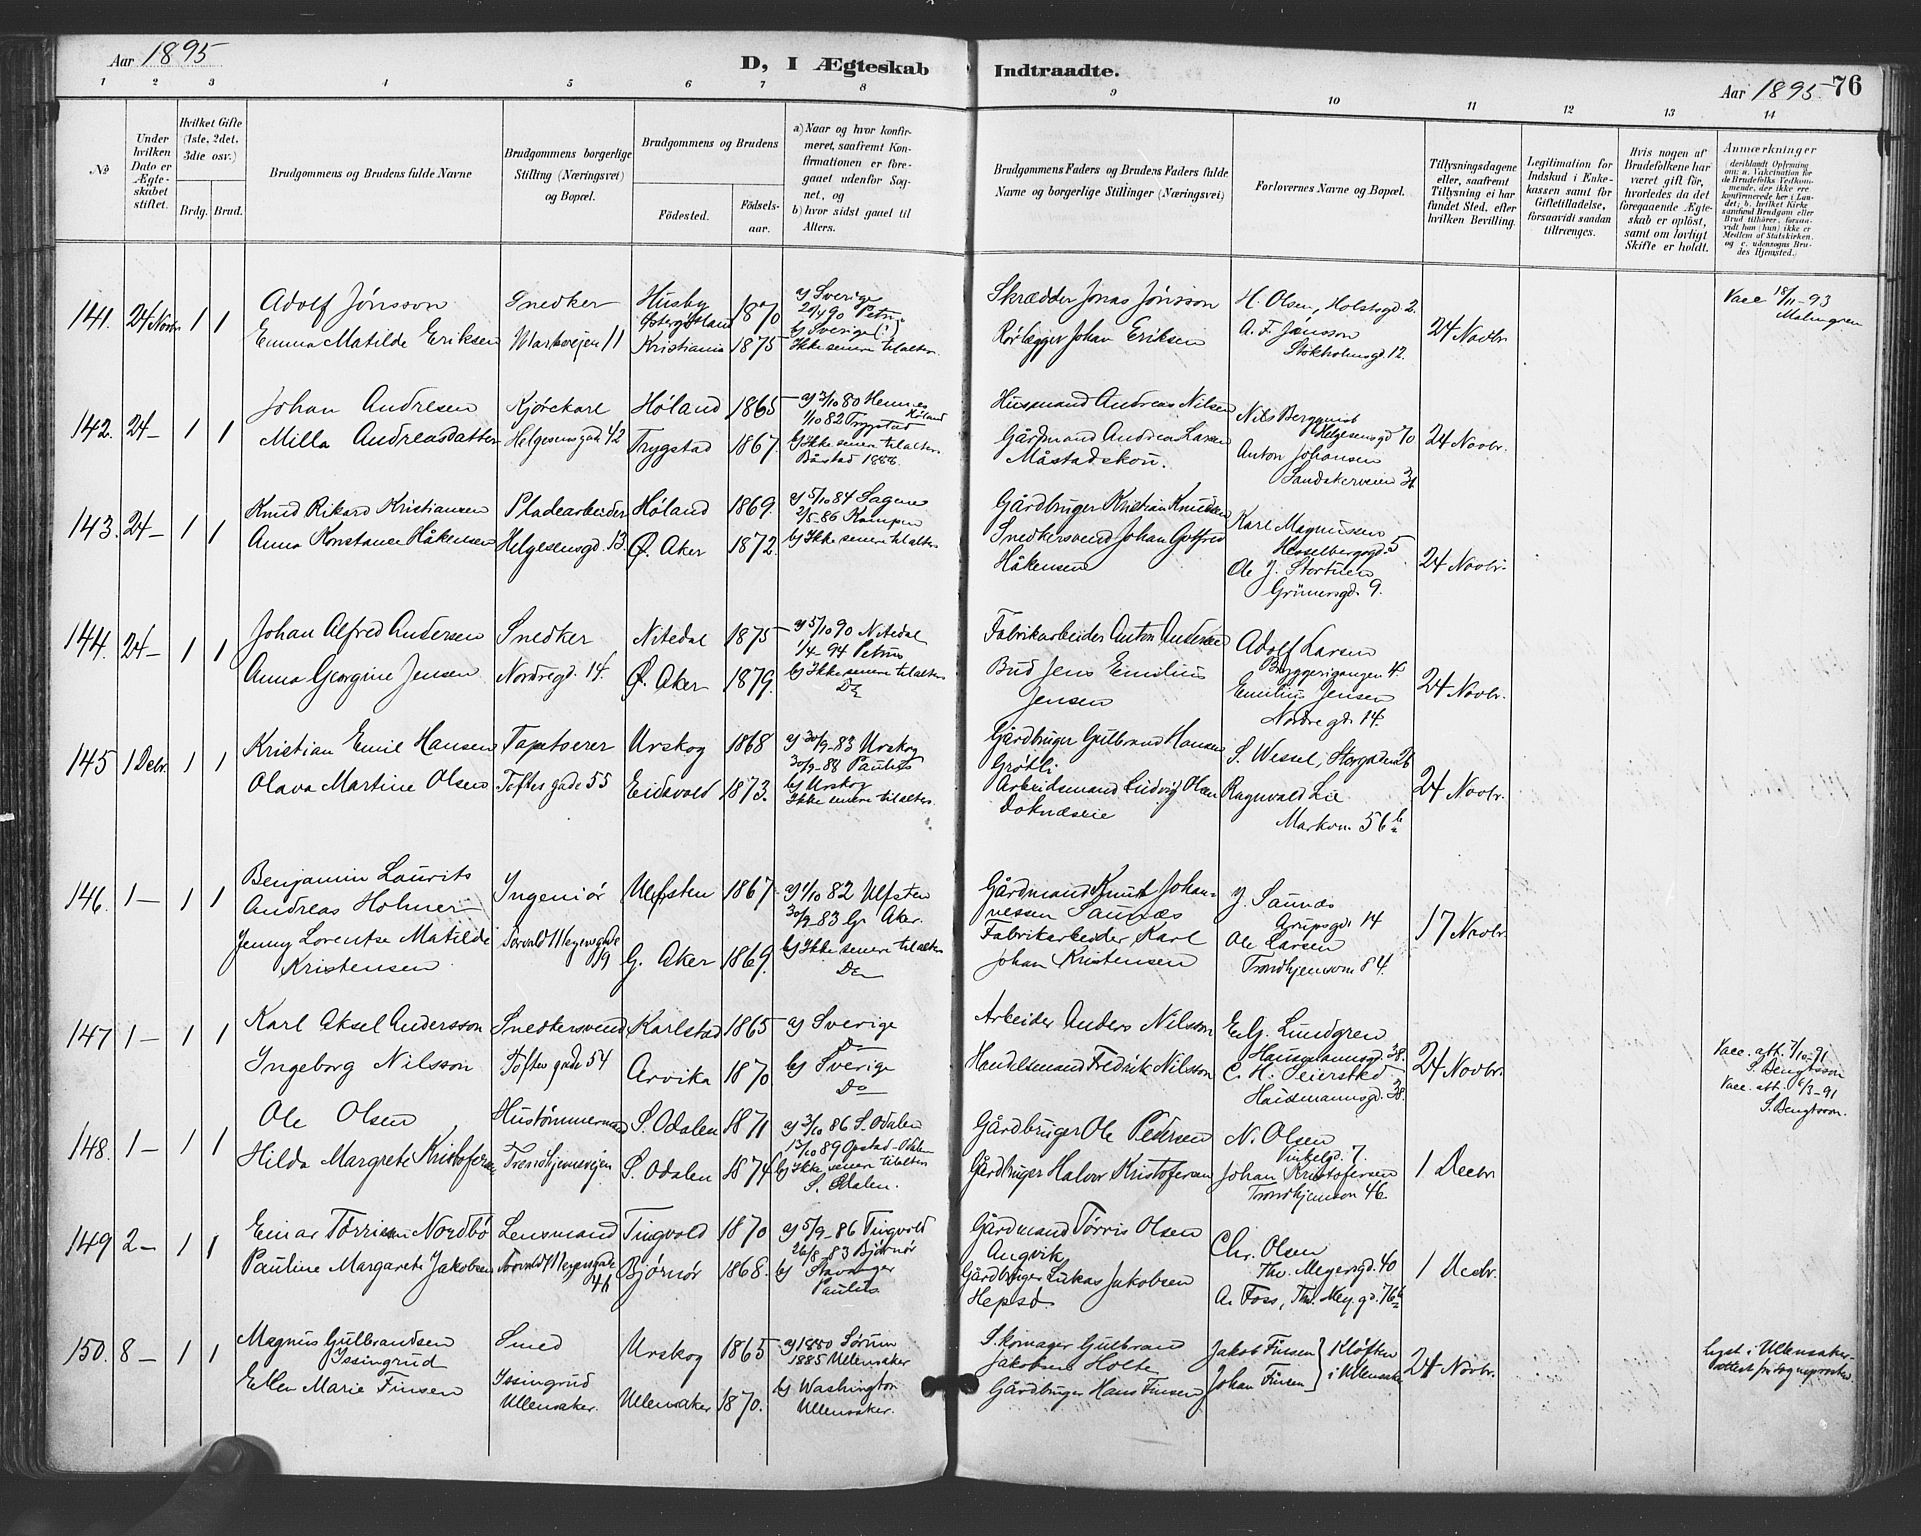 Aar 1895
D, I Ægteskab
Indtraadte.
Aar 1895.
76
1 2 3 4 5 6 7 8 9 10 11 12 13 14
No
Under hvilken Dato er Ægteskabet stiftet.
Hvilket Gifte (1ste, 2det, 3die osv.)
Brdg. Brud.
Brudgommens og Brudens fulde Navne
Brudgommens borgerlige Stilling (Næringsvei) og Bopæl.
Brudgommens og Brudens
Fødested.
Fødselsaar.
a) Naar og hvor konfirmeret, saafremt Konfirmationen er foregaaet udenfor Sognet, og
b) hvor sidst gaaet til Alters.
Brudgommens Faders og Brudens Faders fulde Navne og borgerlige Stillinger (Næringsvei)
Forlovernes Navne og Bopæl.
Tillysningsdagene eller, saafremt Tillysning ei har fundet Sted, efter hvilken Bevilling.
Legitimation for Indskud i Enkekassen samt for Giftetilladelse, forsaavidt saadan tiltrænges.
Hvis nogen af Brudefolkene har været gift før, hvorledes da det foregaaende Ægteskab er opløst, samt om lovligt Skifte er holdt.
Anmærkninger
(deriblandt Oplysning om: a. Vakcination for de Brudefolks Vedkommende, der ikke ere konfirmerede her i Landet; b. hvilket Kirkesamfund Brudgom eller Brud tilhører, forsaavidt han (hun) ikke er Medlem af Statskirken, og c. udensogns Brudes Hjemsted.)
141. 24 Novbr. 1 1
Adolf Jönsson
Snedker
Husby Østergötland
1870
a) Sverige
20/4 90 Petri
Skrædder Jonas Jönsson
H. Olsen, Holstsgd 2.
24 Novbr.
Vacc 18/11-93
Malmgren
Emma Matilde Eriksen
Markveien 11
Kristiania
1875
b) Sverige (!)
Ikke senere tilalters
Rørlægger Johan Eriksen
A. F. Jansson
Stokholmsgd. 12.
142. 24- 1 1
Johan Andresen
Kjørekarl
Høland
1865
a) 3/10 80 Hemnes Høland
1/10 82 Trygstad
Husmand Andreas Nilsen
Nils Bergqvist
Helgesensgd 70
24 Novbr.
Milla Andreasdatter
Helgesensgade 42
Trygstad
1867.
b) Ikke senere tilalters
Båstad 1888.
Gårdmand Andreas Larsen
Måstadskou.
Anton Johansen
Sandakerveien
143. 24- 1 1
Knud Rikard Kristiansen
Pladearbeider
Høland
1869.
a) 5/10 84 Sagene
2/5-86 Kampen
Gårdbruger Kristian Knudsen
Karl Magnussen
Hesselbergsgd. 5
24 Novbr.
Anna Konstance Håkensen
Helgesensgd. 13.
Ø. Aker
1872.
b) Ikke senere tilalters
Snedkersvend Johan Gotfred
Håkensen
Ole J. Stortuen
Grünersgd. 9.
144. 24- 1 1
Johan Alfred Andersen
Snedker
Nitedal
1875
a) 5/10 90 Nitedal
1/4 94 Petrus
Fabrikarbeider Anton Andersen
Adolf Larsen
Bryggerigangen 4.
24 Novbr.
Anna Georgine Jensen
Nordregd. 14.
Ø. Aker
1879.
b) Ikke senere tilalters
Do
Bud Jens Emilius
Jensen
Emilius Jensen
Nordregd. 14.
145 1 Decbr. 1 1
Kristian Emil Hansen
Taptserer
Urskog
1868
a) 30/9-83 Urskog
30/9-88 Paulus
Gårdbruger Gulbrand Hansen
Grøtli
S. Wessel, Storgaden 26
24 Novbr.
Olava Martine Olsen
Toftesgade 55
Eidsvold
1873.
b) Urskog
Ikke senere tilalters.
Arbeidsmand Ludvig Olsen
Ragnvald Lie
Markvn. 56 b
146. 1- 1 1
Benjamin Laurits
Andreas Holmer
Ingeniør
Ulfsten
1867.
a) 1/10 82 Ulfsten
30/9-83 G. Aker.
Gårdmand Knut Johannessen Saunæs
J. Saunæs
Arupsgd. 14
17 Novbr.
Jenny Lorentse Matilde
Kristensen
Torvald Meyersgade 19
G. Aker
1869.
b) Ikke senere tilalters
Do
Fabrikarbeider Karl
Johan Kristensen
Ole Larsen
Trondhjemsvn 84.
147 1- 1 1
Karl Aksel Andersson
Snedkersvend
Karlstad
1865
a) Sverige
Do
Arbeider Anders Nilsson
E. G. Lundgren
Hausmannsgd. 38.
24 Novbr.
Vacc. att. 7/10-91
S. Bengtsson
Ingeborg Nilsson
Toftesgade 54
Arvika
1870
b) Sverige
Do
Handelsmand Fredrik Nilsson
C. H. Seiersted
Hausmannsgd. 38.
Vacc. att. 6/3-91
S. Bengtsson.
148. 1- 1 1
Ole Olsen
Hustømmermand
S. Odalen
1871
a) 3/10 86 S. Odalen
13/10 89 Opstad-Odalen
Gårdbruger Ole Pedersen
N. Olsen
Vinkelgd. 7.
1 Decbr.
Hilda Margrete Kristofersen
Trondhjemsveien
S. Odalen
1874
b) Ikke senere tilalters
S. Odalen.
Gårdbruger Halvor Kristofersen
Johan Kristofersen
Trondhjemsvn 46.
149 2- 1 1
Einar Tørrisen Nordbø
Lensmand
Tingvold
1870
a) 5/9-86 Tingvold
26/8-83 Bjørnør
Gårdmand Tørris Olsen
Angvik
Chr. Olsen
Th. Meyersgd. 40
1 Decbr.
Pauline Margarete Jakobsen
Torvald Meyersgade 41
Bjørnør
1868.
b) Stavanger
Paulus.
Gårdbruger Lukas Jakobsen
Hepsø.
A. Foss, Th. Mey. gd. 76 b
150. 8- 1 1
Magnus Gulbrandsen
Issingrud
Smed
Urskog
1865
a) 1880 Sørum
1885 Ullensaker
Skomager Gulbran
Jakobsen Holte
Jakob Finsen
Johan Finsen } Kløften i Ullensaker
24 Novbr.
Lyst i Ullensaker
attest fra Sognepræsten
Ellen Marie Finsen
Issingrud
Ullensaker.
Ullensaker
1870.
b) Washington
Ullensaker.
Gårdbruger Hans Finsen